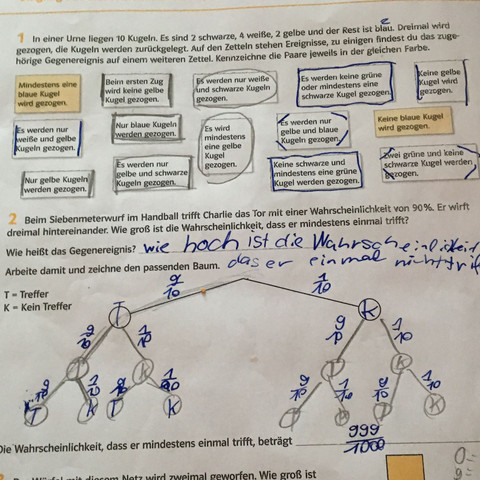 1 In einer Urne liegen 10 Kugeln. Es sind 2 schwarze, 4 weiße, 2 gelbe und der Rest ist blau. Dreimal wird
gezogen, die Kugeln werden zurückgelegt. Auf den Zetteln stehen Ereignisse, zu einigen findest du das zuge-
hörige Gegenereignis auf einem weiteren Zettel. Kennzeichne die Paare jeweils in der gleichen Farbe.
Mindestens eine
blaue Kugel
wird gezogen.
Beim ersten Zug
wird keine gelbe
Kugel gezogen.
Es werden nur weiße
und schwarze Kugeln
gezogen.
Es werden keine grüne
oder mindestens eine
schwarze Kugel gezogen.
Keine gelbe
Kugel wird
gezogen.
Es werden nur
weiße und gelbe
Kugeln gezogen.
Nur blaue Kugeln
werden gezogen.
Es wird
mindestens
eine gelbe
Kugel
gezogen.
Es werden nur
gelbe und blaue
Kugeln gezogen.
Keine blaue Kugel
wird gezogen.
Nur gelbe Kugeln
werden gezogen.
Es werden nur
gelbe und schwarze
Kugeln gezogen.
Keine schwarze und
mindestens eine grüne
Kugel werden gezogen.
Zwei grüne und keine
schwarze Kugel werden
gezogen.
2 Beim Siebenmeterwurf im Handball trifft Charlie das Tor mit einer Wahrscheinlichkeit von 90%. Er wirft
dreimal hintereinander. Wie groß ist die Wahrscheinlichkeit, dass er mindestens einmal trifft?
Wie heißt das Gegenereignis? wie hoch ist die Wahrscheinlichkeit
Arbeite damit und zeichne den passenden Baum. das er einmal nicht trif
T = Treffer
K = Kein Treffer
9/10 1/10
T K
9/10 1/10 9/10 1/10
T K T K
9/10 1/10 9/10 1/10 9/10 1/10 9/10 1/10
T K T K T K T K
Die Wahrscheinlichkeit, dass er mindestens einmal trifft, beträgt 999/1000
diesem Netz wird zweimal geworfen. Wie groß ist